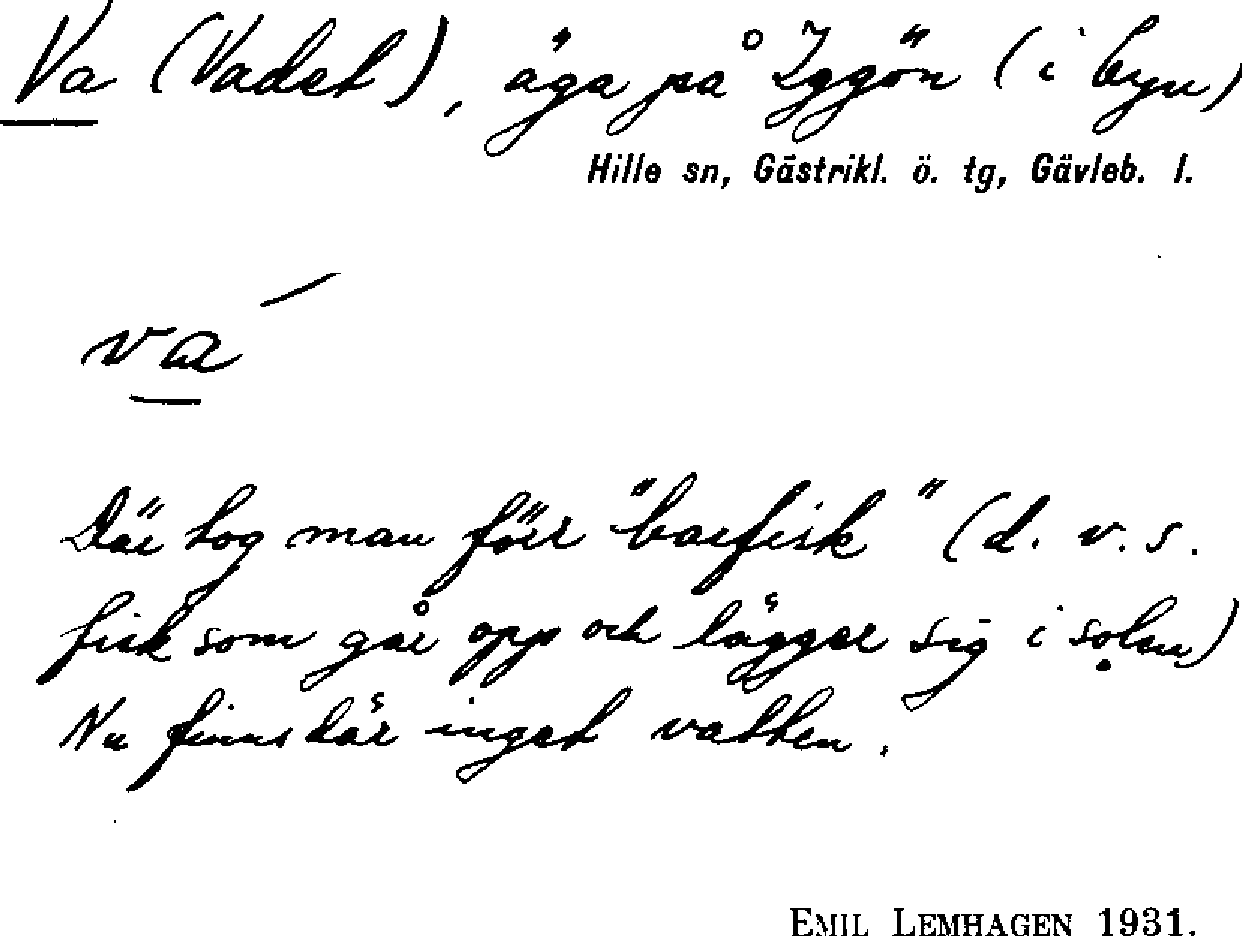 Va (Vadet), äga på Iggön (i byn)
Hille sn, Gästrikl. ö. tg, Gävleb. l.
va´
Där tog man förr "barfisk" (d. v. s.
fisk som går opp och lägger sig i solen)
Nu finns där inget vatten.
EMIL LEMHAGEN 1931.